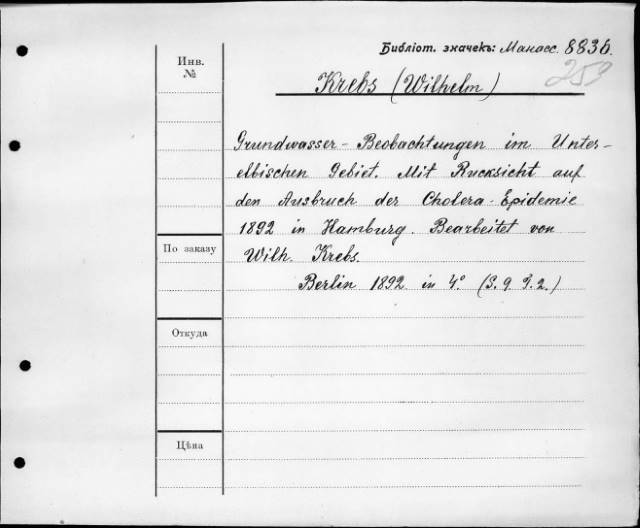 Библіот. значекъ: Манасс. 8836.
259
Инв.
№
Krebs (Wilhelm)
Grundwasser - Beobachtungen im Unter-
elbischen Gebiet. Mit Rucksicht auf
den Ausbruch der Cholera - Epidemie
1892 in Hamburg. Bearbeitet von
По заказу
Wilh. Krebs.
Berlin 1892. in 4°. (3. 9. 9. 2.)
Откуда
Цѣна